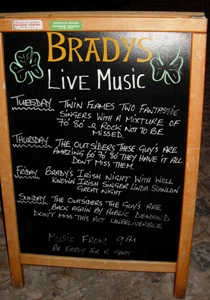 BRADYS
LIVE MUSIC
TUESDAY TWIN FLAMES TWO FANTASTIC
SINGERS WITH A MIXTURE OF
70 80 & ROCK NOT TO BE
MISSED.
THURSDAY THE OUTSIDERS THESE GUYS ARE
AMAZING 60 70 80 THEY HAVE IT ALL
DON'T MISS THEM.
FRIDAY BRADYS IRISH NIGHT WITH WELL
KNOWN IRISH SINGER LINDA
GREAT NIGHT
SUNDAY THE OUTSIDERS THE GUYS ARE
BACK AGAIN BY PUBLIC DEMAND
DON'T MISS THIS ACT UNBELIEVABLE
MUSIC FROM 9PM
BE READY FOR A